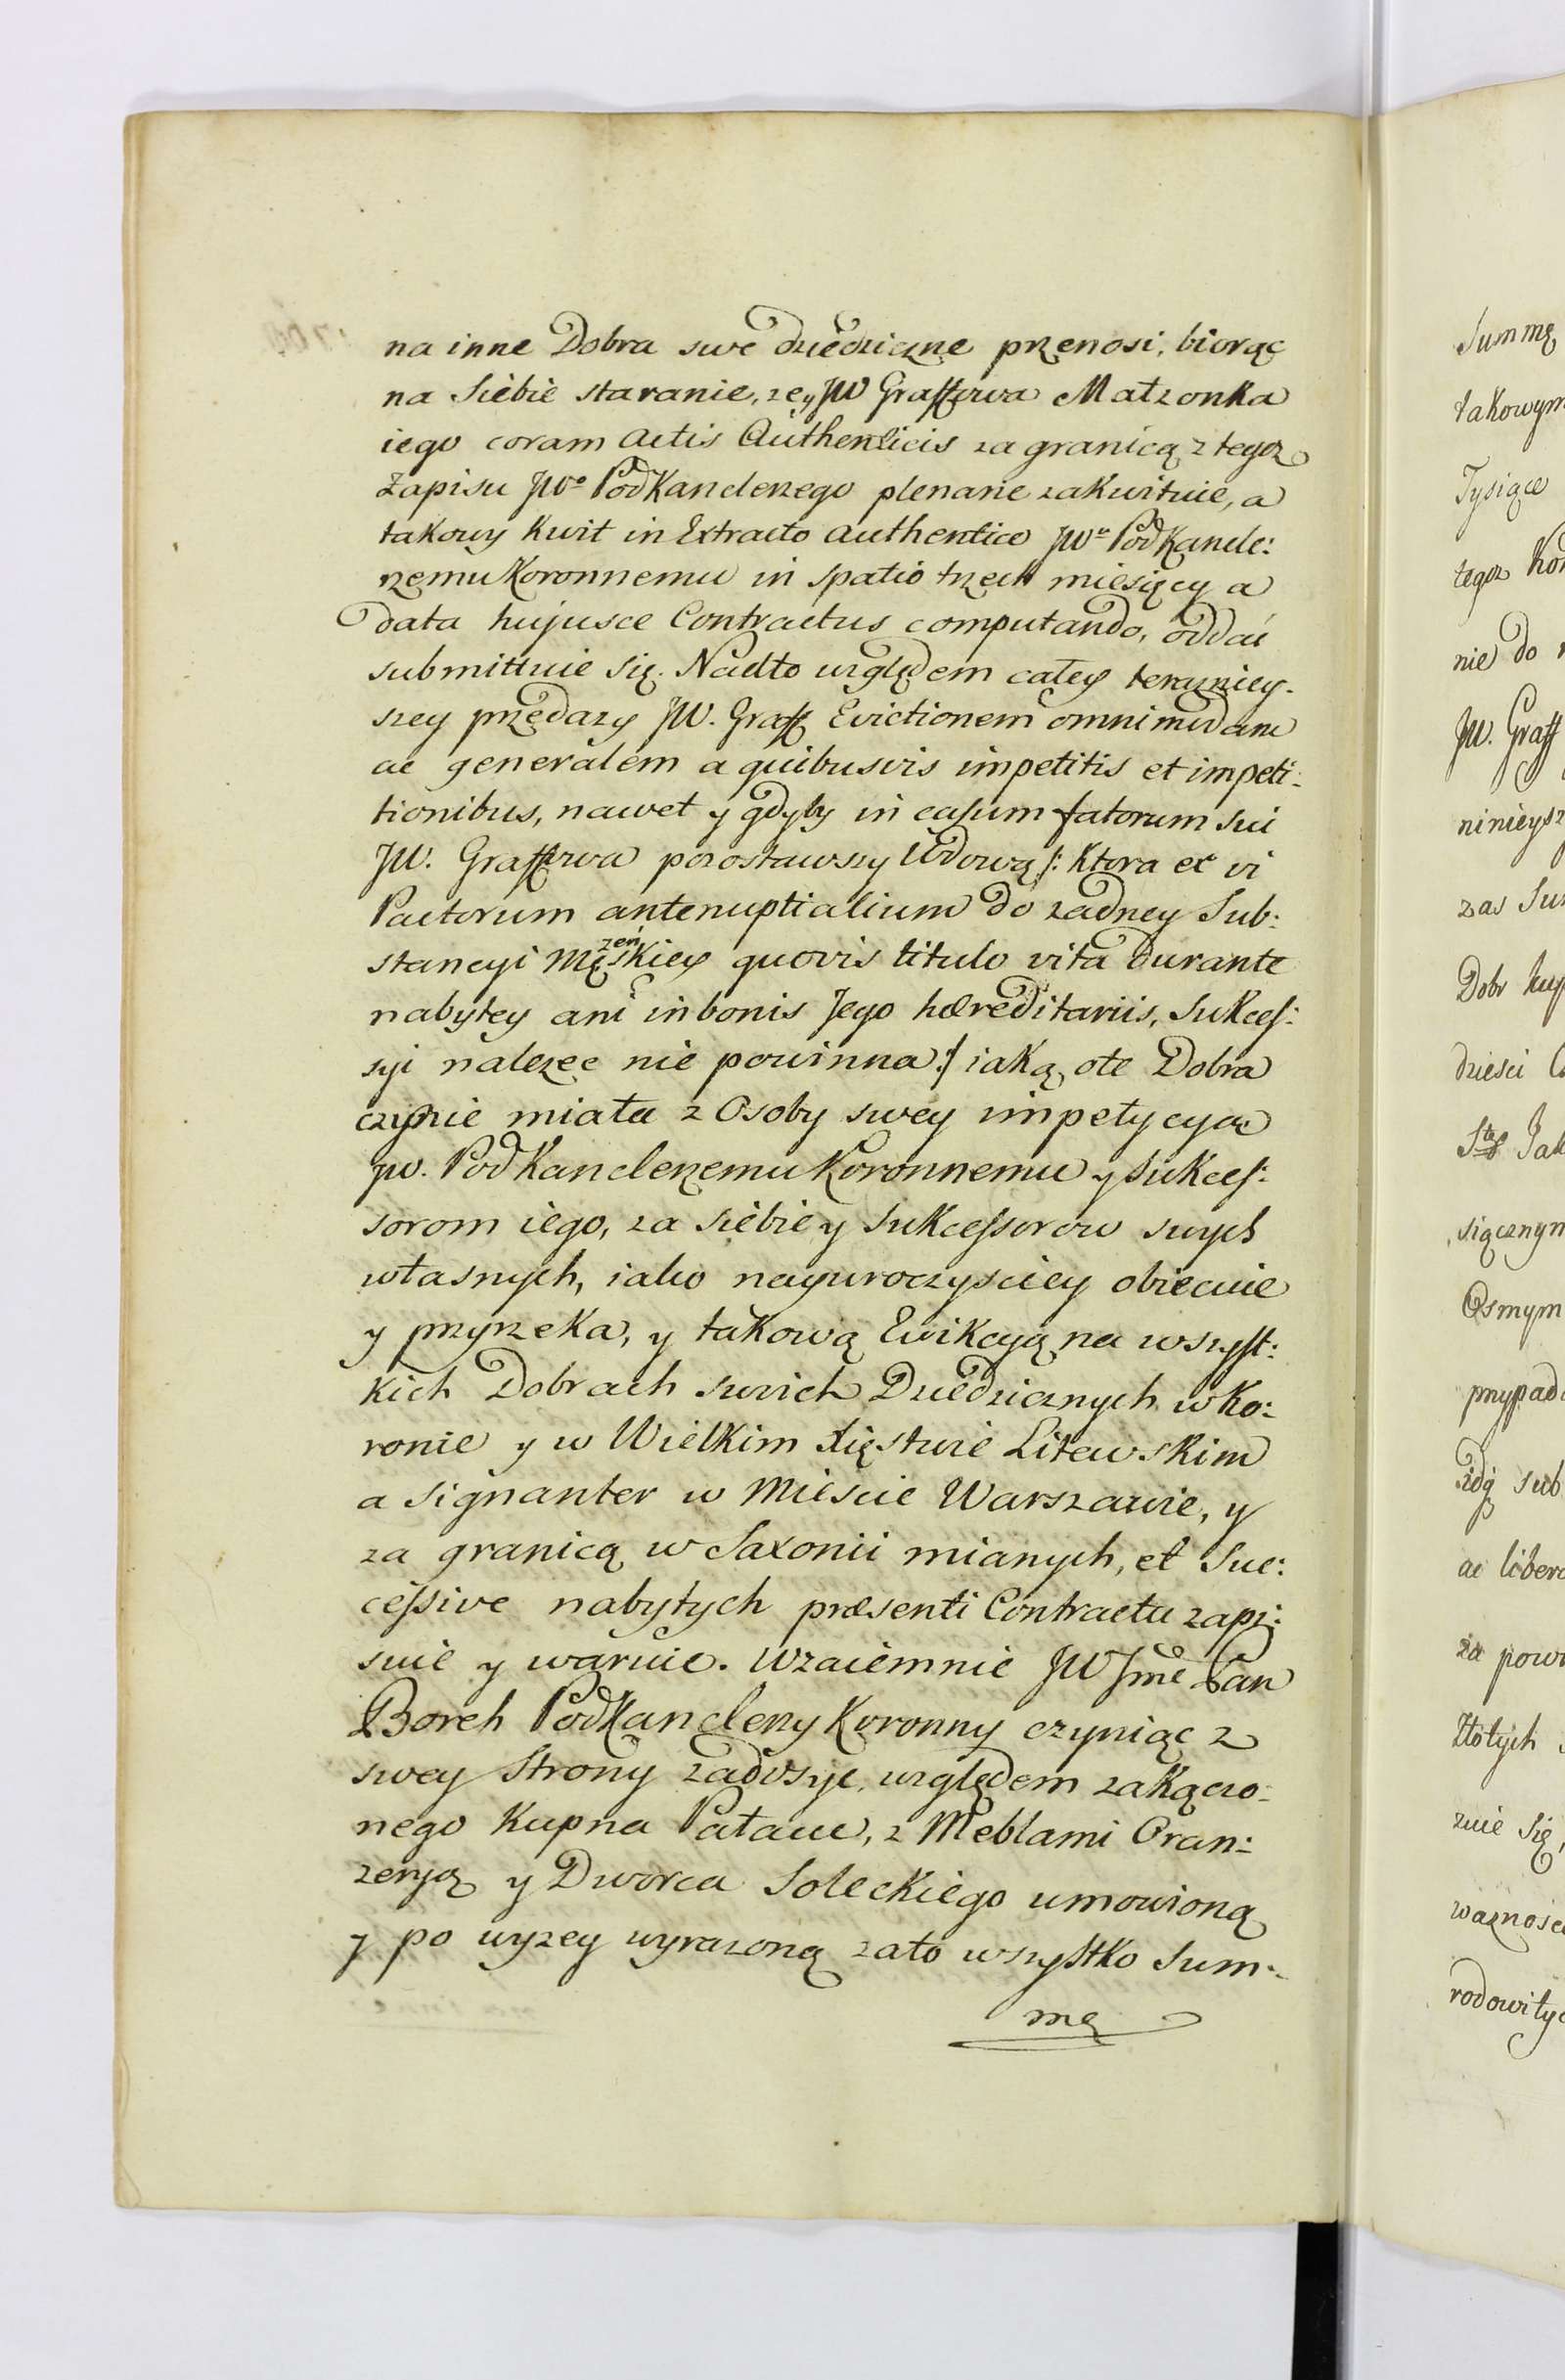 na inne Dobra swe dziedziczne przenosi, biorąc
na Siebie staranie, ze y JW Graffowa Małzonka
iego coram Actis Authenticis za granicą z tegoz
Zapisu JWo PodKanclerzego plenarie zakwituie, a
takowy Kwit in Extracto authentico JWu PodKancle:
rzemu Koronnemu in spatio trzech miesięcy a
data hujusce Contractus computando, oddać
submittuie się. Nadto względem całey terazniey-
szey przedazy JW. Graff Evictionem omnimodam
ac generalem a quibusvis impetitis et impeti-
tionibus, nawet y gdyby in casum fatorum sui
JW. Graffowa pozostawszy Wdową /: Ktora ex vi
Pactorum antenuptialium do zadney Sub:
stancyi Męzeńskiey quovis titulo vita durante
nabytey ani in bonis Jego hæreditariis, Sukces:
syi nalezec nie powinna :/ iaką o te Dobra
czynie miała z Osoby swey impetycyą
JW. PodKanclerzemu Koronnemu y Sukces:
sorom iego, za siebie y Sukcessorow swych
własnych, iako nayuroczysciey obiecuie
y przyrzeka, y takową Ewikcyą na wszyst:
kich Dobrach swoich Dziedzicznych w Ko:
ronie y w Wielkim Xięstwie Litewskim
a signanter w Miescie Warszawie, y
za granicą w Saxonii mianych, et Suc:
cessive nabytych præsenti Contractu zapi:
suie y waruie. Wzaiemnie JW Jme Pan
Borch PodKanclerzy Koronny czyniąc z
swey Strony zadosyc, względem zakączo-
nego Kupna Pałacu, z Meblami Oran:
zeryą y Dworca Soleckiego umowioną
y po wyzey wyrazoną zato wszystko Sum-
mę
Summę
takowym
Tysiące
tegoz
nie do
JW. Graff
ninieysz
zas
Dobr
dziesci
siącznym
Osmym
przypad
sub
ac libera
za
Złotych
zuie się,
waznosc
rodowity